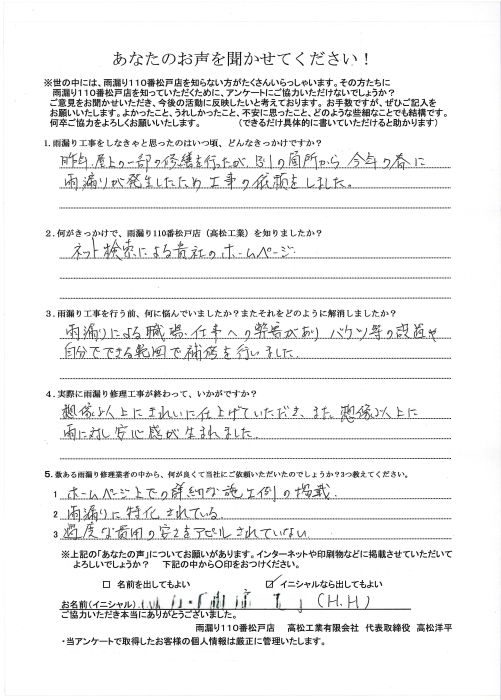 あなたのお声を聞かせてください！
※世の中には、雨漏り110番松戸店を知らない方がたくさんいらっしゃいます。その方たちに
雨漏り110番松戸店を知っていただくために、アンケートにご協力いただけないでしょうか？
ご意見をお聞かせいただき、今後の活動に反映したいと考えております。お手数ですが、ぜひご記入を
お願いいたします。よかったこと、うれしかったこと、不安に思ったこと、どのような些細なことでも結構です。
何卒ご協力をよろしくお願いいたします。　（できるだけ具体的に書いていただけると助かります）
1.雨漏り工事をしなきゃと思ったのはいつ頃、どんなきっかけですか？
昨年、屋上の一部の修繕を行ったが、別の箇所から今年の春に
雨漏りが発生したため工事の依頼をしました。
2.何がきっかけで、雨漏り110番松戸店（高松工業）を知りましたか？
ネット検索による貴社のホームページ.
3.雨漏り工事を行う前、何に悩んでいましたか？またそれをどのように解消しましたか？
雨漏りによる職場、仕事への弊害があり バケツ等の設置や
自分でできる範囲で補修を行いました.
4.実際に雨漏り修理工事が終わって、いかがですか？
想像以上にきれいに仕上げていただき、また、想像以上に
雨に対し安心感が生まれました.
5.数ある雨漏り修理業者の中から、何が良くて当社にご依頼いただいたのでしょうか？3つ教えてください。
1 ホームページ上での詳細な施工例の掲載.
2 雨漏りに特化されている.
3 過度な費用の安さをアピールされていない.
※上記の「あなたの声」についてお願いがあります。インターネットや印刷物などに掲載させていただいて
よろしいでしょうか？　下記の中から〇印をおつけください。
□ 名前を出してもよい　☑ イニシャルなら出してもよい
お名前(イニシャル) (H.H)
ご協力いただき本当にありがとうございました。
雨漏り110番松戸店　高松工業有限会社　代表取締役　高松洋平
・当アンケートで取得したお客様の個人情報は厳正に管理いたします。